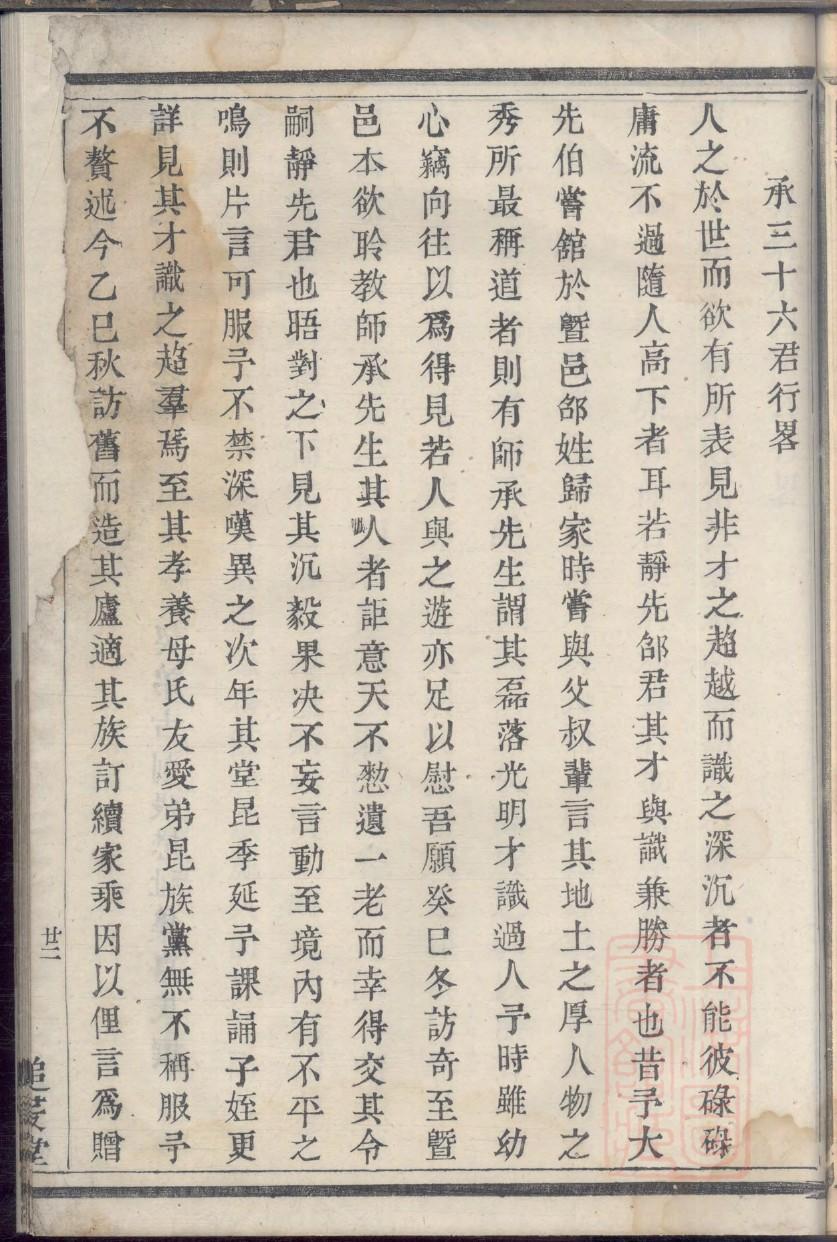 承三十六君行畧
人之於世而欲有所表見非才之趋越而識之深沉者不能彼碌碌
庸流不過隨人高下者耳若靜先郃君其才與識兼勝者也昔予大
先伯嘗舘於暨邑郃姓歸家時嘗與父叔輩言其地土之厚人物之
秀所最稱道者則有師承先生謂其磊落光明才識過人予時雖幼
心竊向往以爲得見若人與之遊亦足以慰吾願癸巳冬訪奇至暨
邑本欲聆教師承先生其人者詎意天不憖遺一老而幸得交其令
嗣靜先君也晤對之下見其沉毅果决不妄言動至境內有不平之
鳴則片言可服予不禁深嘆異之次年其堂昆季延予課誦子姪更
詳見其才識之趋羣焉至其孝養母氏友愛弟昆族黨無不稱服予
不贅述今乙巳秋訪舊而造其廬適其族訂續家乘因以俚言爲贈
廿二
追遠堂